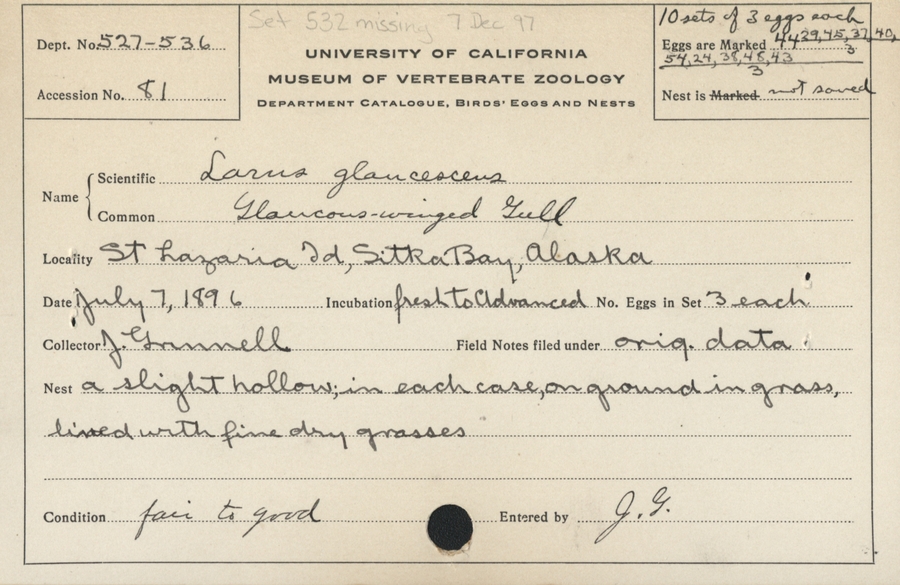 Set 532 missing 7 Dec 97
10 sets of 3 eggs each
Dept. No. 527-536
UNIVERSITY OF CALIFORNIA
MUSEUM OF VERTEBRATE ZOOLOGY
DEPARTMENT CATALOGUE, BIRDS' EGGS AND NESTS
Eggs are Marked 44, 29, 45, 37, 40,
3
54, 24, 38, 48, 43
3
Accession No. 81
Nest is Marked not saved
Name
Scientific Larus glaucescens
Common Glaucous-winged Gull
Locality St Lazaria Id, Sitka Bay, Alaska
Date July 7, 1896 Incubation fresh to advanced No. Eggs in Set 3 each
Collector J. Grinnell Field Notes filed under orig. data
Nest a slight hollow; in each case, on ground in grass,
lined with fine dry grasses
Condition fair to good Entered by J. G.